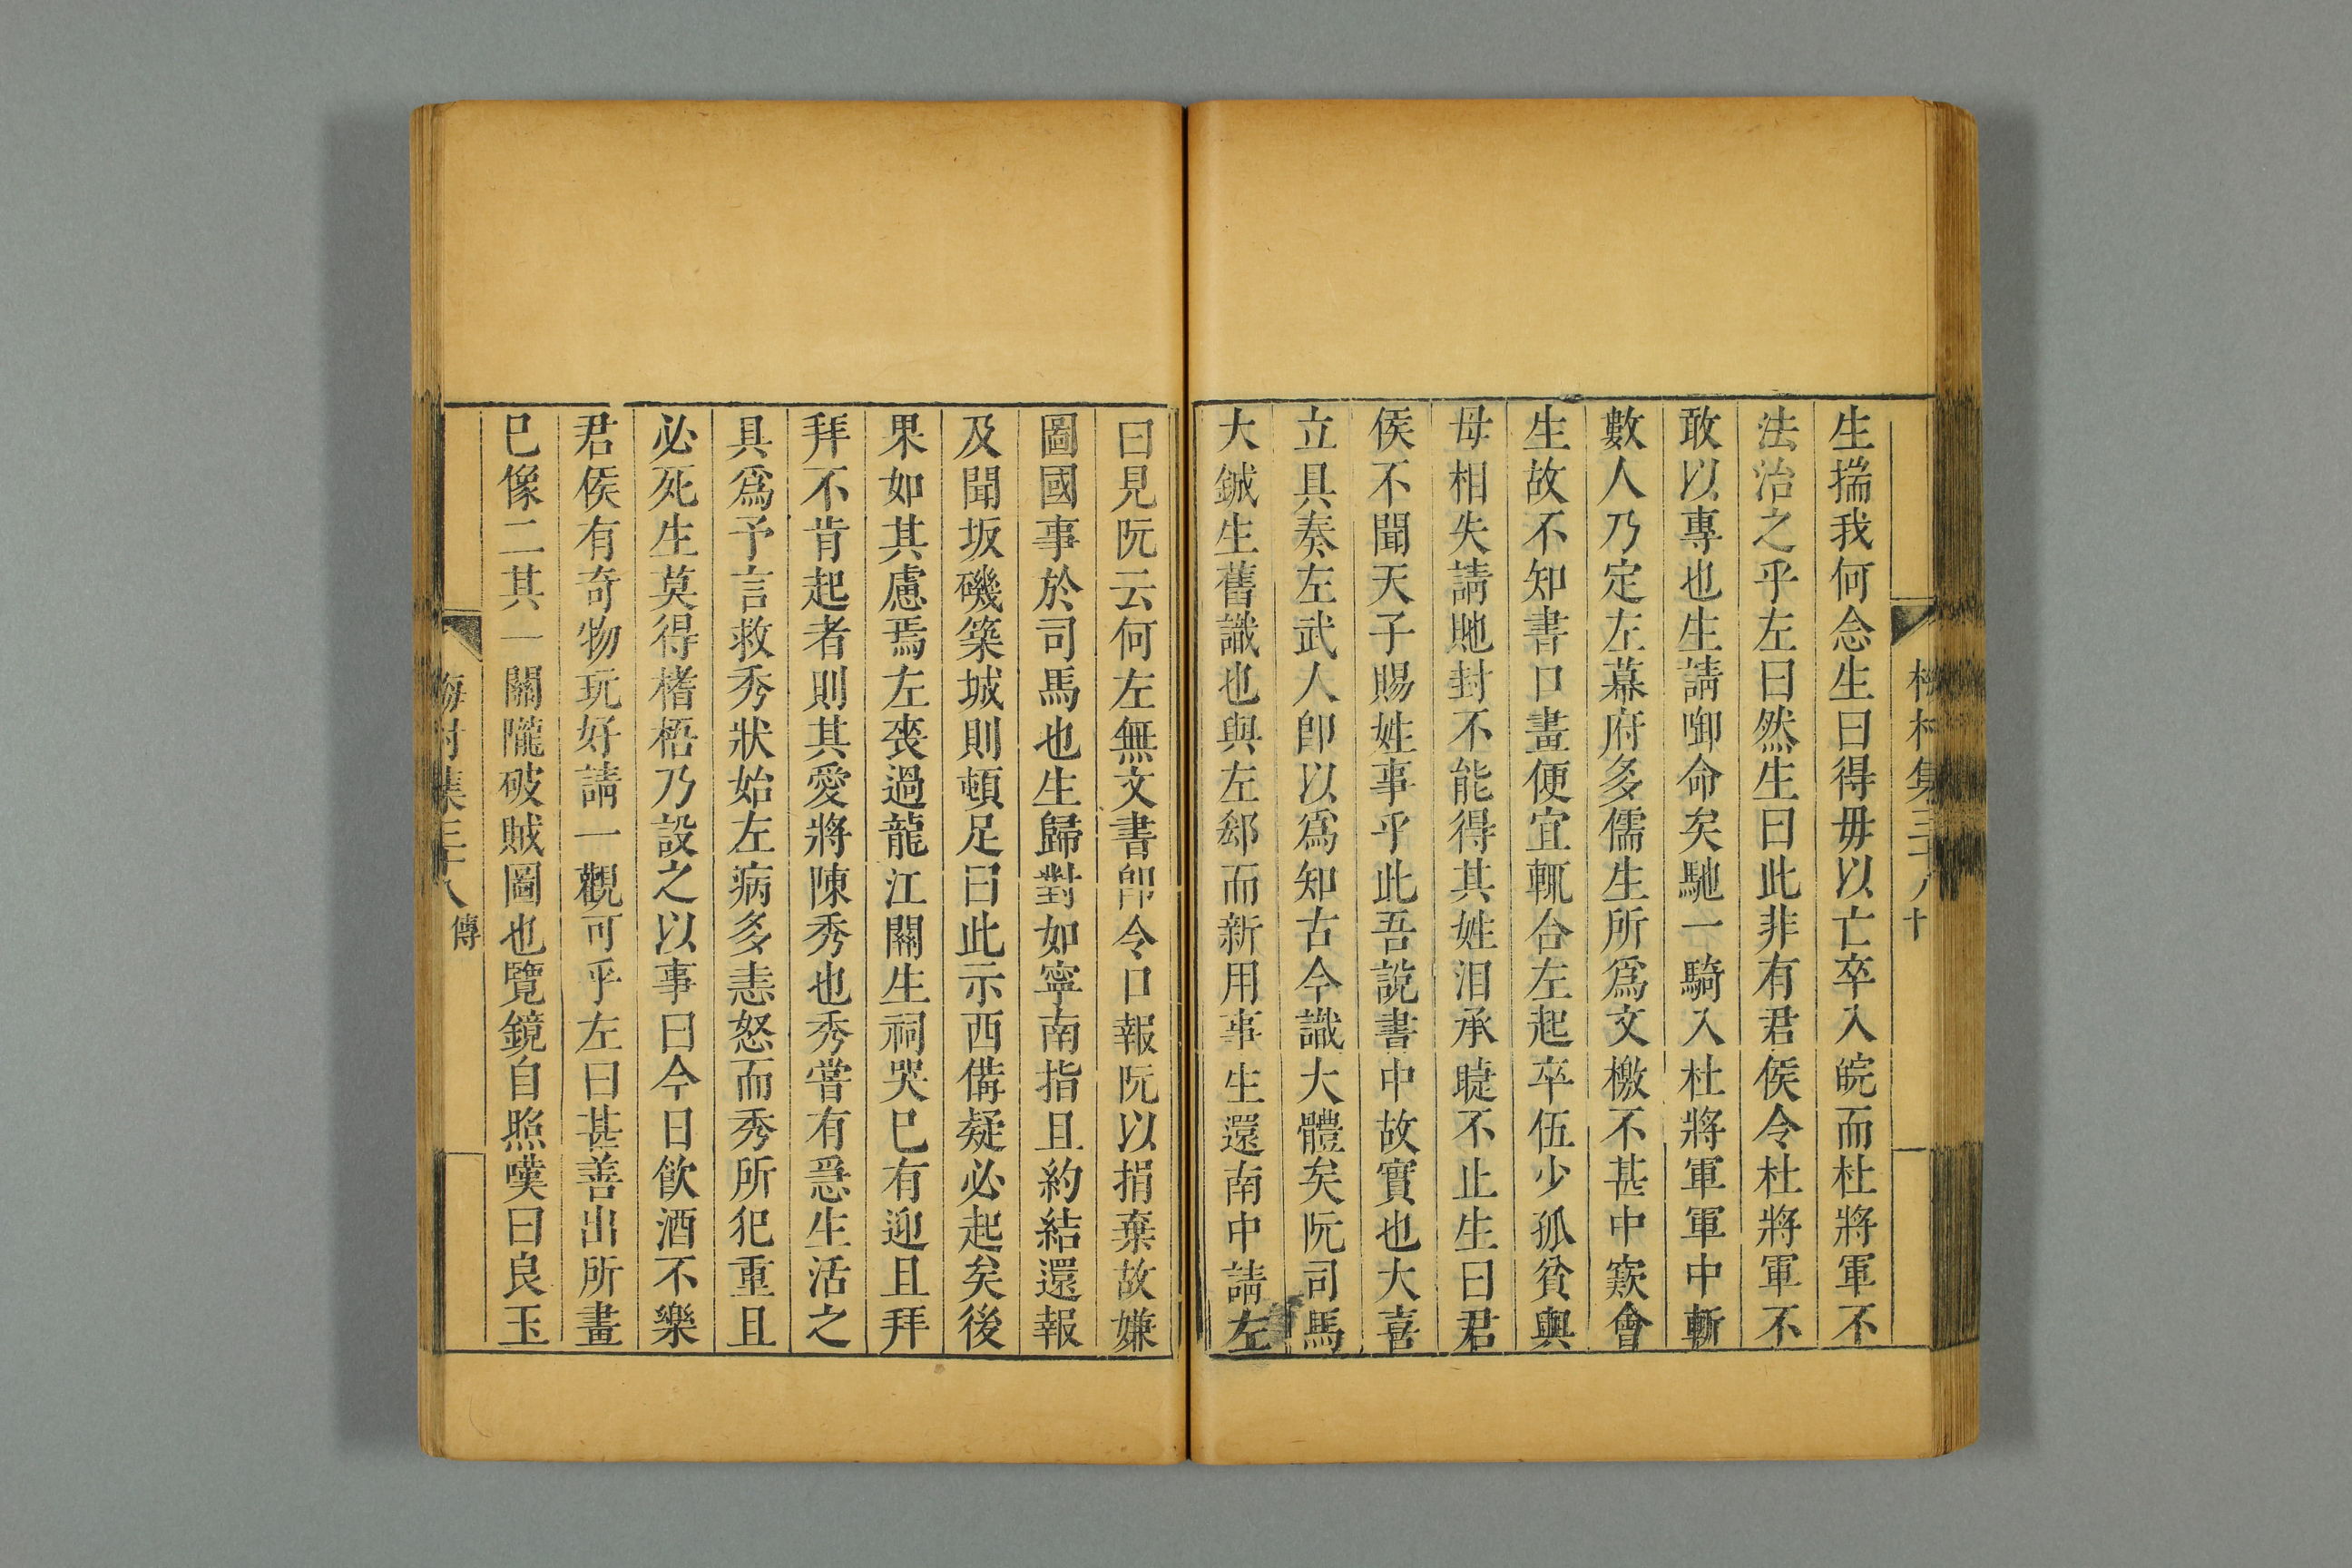 生揣我何念生曰得毋以亡卒入皖而杜將軍不
法治之乎左曰然生曰此非有君侯令杜將軍不
敢以專也生請啣命矣馳一騎入杜將軍軍中斬
數人乃定左幕府多儒生所爲文檄不甚中窾會
生故不知書口畫便宜輒合左起卒伍少孤貧與
母相失請貤封不能得其姓泪承睫不止生曰君
侯不聞天子賜姓事乎此吾說書中故實也大喜
立具奏左武人卽以爲知古今識大體矣阮司馬
大鋮生舊識也與左郄而新用事生還南中請左
曰見阮云何左無文書卽令口報阮以捐棄故嫌
圖國事於司馬也生歸對如寧南指且約結還報
及聞坂磯築城則頓足曰此示西備疑必起矣後
果如其慮焉左喪過龍江關生祠哭已有迎且拜
拜不肯起者則其愛將陳秀也秀嘗有急生活之
具爲予言救秀狀始左病多恚怒而秀所犯重且
必死生莫得榰梧乃設之以事曰今日飲酒不樂
君侯有奇物玩好請一觀可乎左曰甚善出所畫
巳像二其一關隴破賊圖也覽鏡自照嘆曰良玉
梅村集三十八 傳